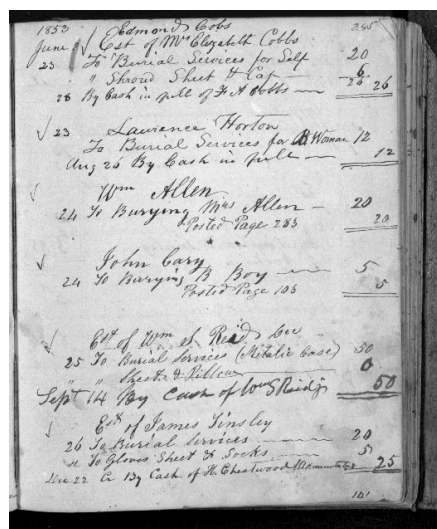 1853 Edmond Cobbs 285
June Est of Mrs Elizabeth Cobbs
23 To Burial Services for Self 20
" Shroud Sheet & Cap — 6
28 By Cash in full of F A Cobbs — 26 26
23 Lawrence Horton
To Burial Services for B Woman 12
Aug 26 By Cash in full — 12
Wm Allen
24 To Burying Mrs Allen — 20
Posted Page 283 20
John Cary
24 To Burying B Boy — 5
Posted Page 103 5
Est of Wm S. Reid
25 To Burial Services (Metalic Case) 50
" " Sheet & Pillow 0
Sept 14 By Cash of Wm S Reid Jr 50
Est of James Tinsley
26 To Burial Services — 20
" To Gloves Sheet & Socks — 5
22 Cr By Cash of H. Chestwood Administrator 25